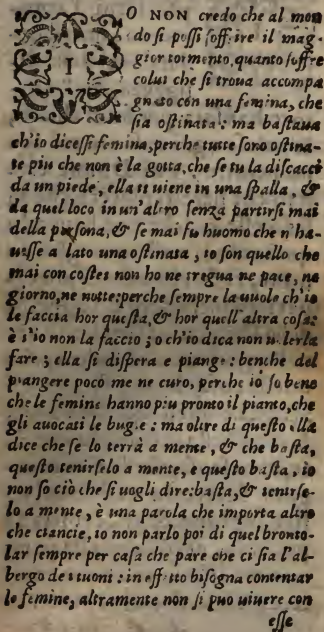 IO NON credo che al mon
do si possi soffrire il mag-
gior tormento, quanto soffre
colui che si troua accompa
gnato con una femina, che
sia ostinata: ma bastaua
ch'io dicessi femina, perche tutte sono ostina-
te piu che non è la gotta, che se tu la discacci
da un piede, ella ti uiene in una spalla, &
da quel loco in un'altro senza partirsi mai
della persona, & se mai fu huomo che n'ha-
uesse a lato una ostinata, io son quello che
mai con costei non ho ne tregua ne pace, ne
giorno, ne notte: perche sempre la uuole ch'io
le faccia hor questa, & hor quell'altra cosa:
è s'io non la faccio; o ch'io dica non uolerla
fare; ella si dispera e piange: benche del
piangere poco me ne curo, perche io so bene
che le femine hanno piu pronto il pianto, che
gli auocati le bugie: ma oltre di questo ella
dice che se lo terrà a mente, & che basta,
questo tenirselo a mente, e questo basta, io
non so ciò che si uogli dire: basta, & tenirse-
lo a mente, è una parola che importa altro
che ciancie, io non parlo poi di quel bronto-
lar sempre per casa che pare che ci sia l'al-
bergo de i tuoni: in effetto bisogna contentar
le femine, altramente non si puo uiuere con
esse